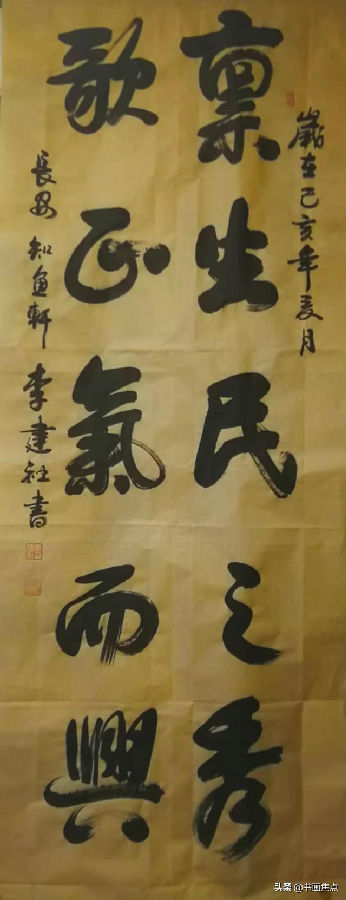 歲在己亥年夏月
稟生民之秀
歌正氣而興
長安 知魚軒 李建社書
头条 @书画焦点